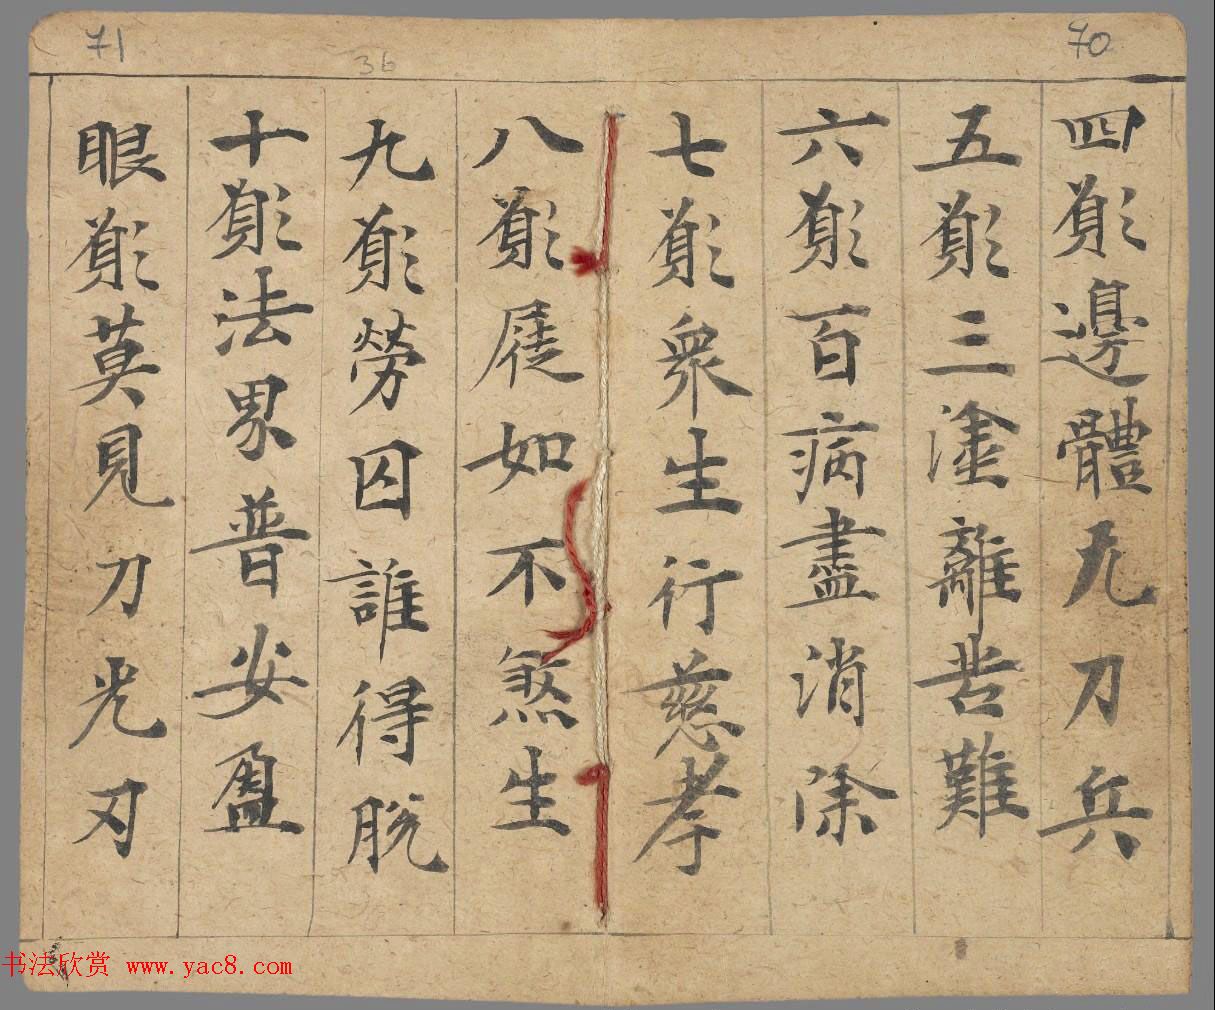 70
四願邊體无刀兵
五願三塗離苦難
六願百病盡消除
七願衆生行慈孝
八願屣如不煞生
九願勞囚誰得脫
十願法界普安盈
眼願莫見刀光刃
36
71
书法欣赏 www.yac8.com